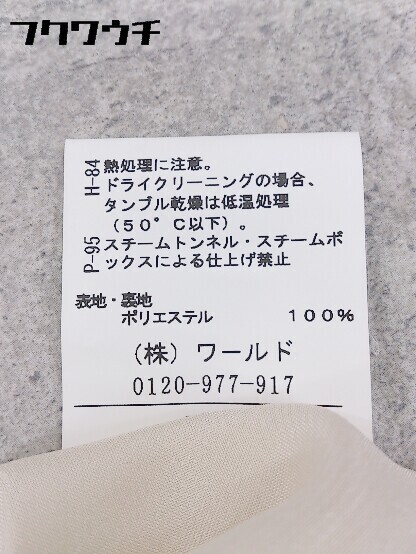 フクワウチ
H-84 熱処理に注意。
ドライクリーニングの場合、
タンブル乾燥は低温処理
（50°C以下）。
P-95 スチームトンネル・スチームボ
ックスによる仕上げ禁止
表地・裏地
ポリエステル 100%
（株）ワールド
0120-977-917